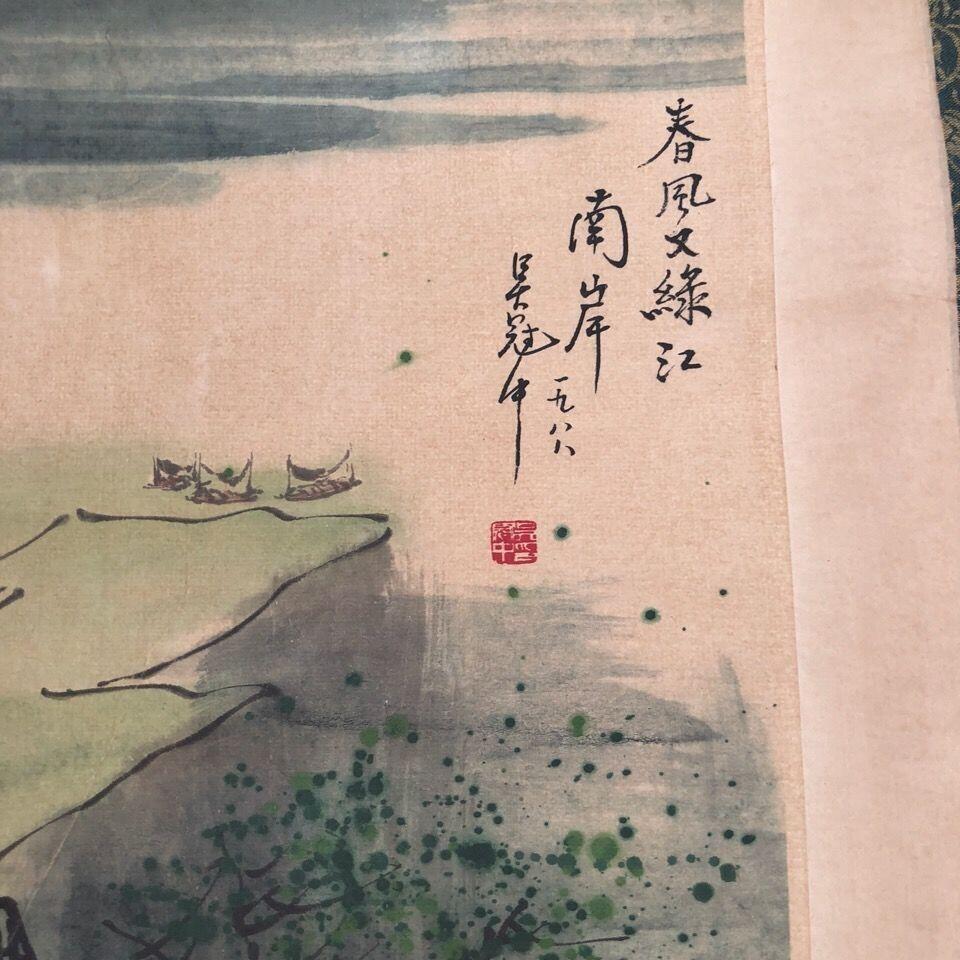 春風又綠江
南岸
一九八八
吳冠中
吳冠中印